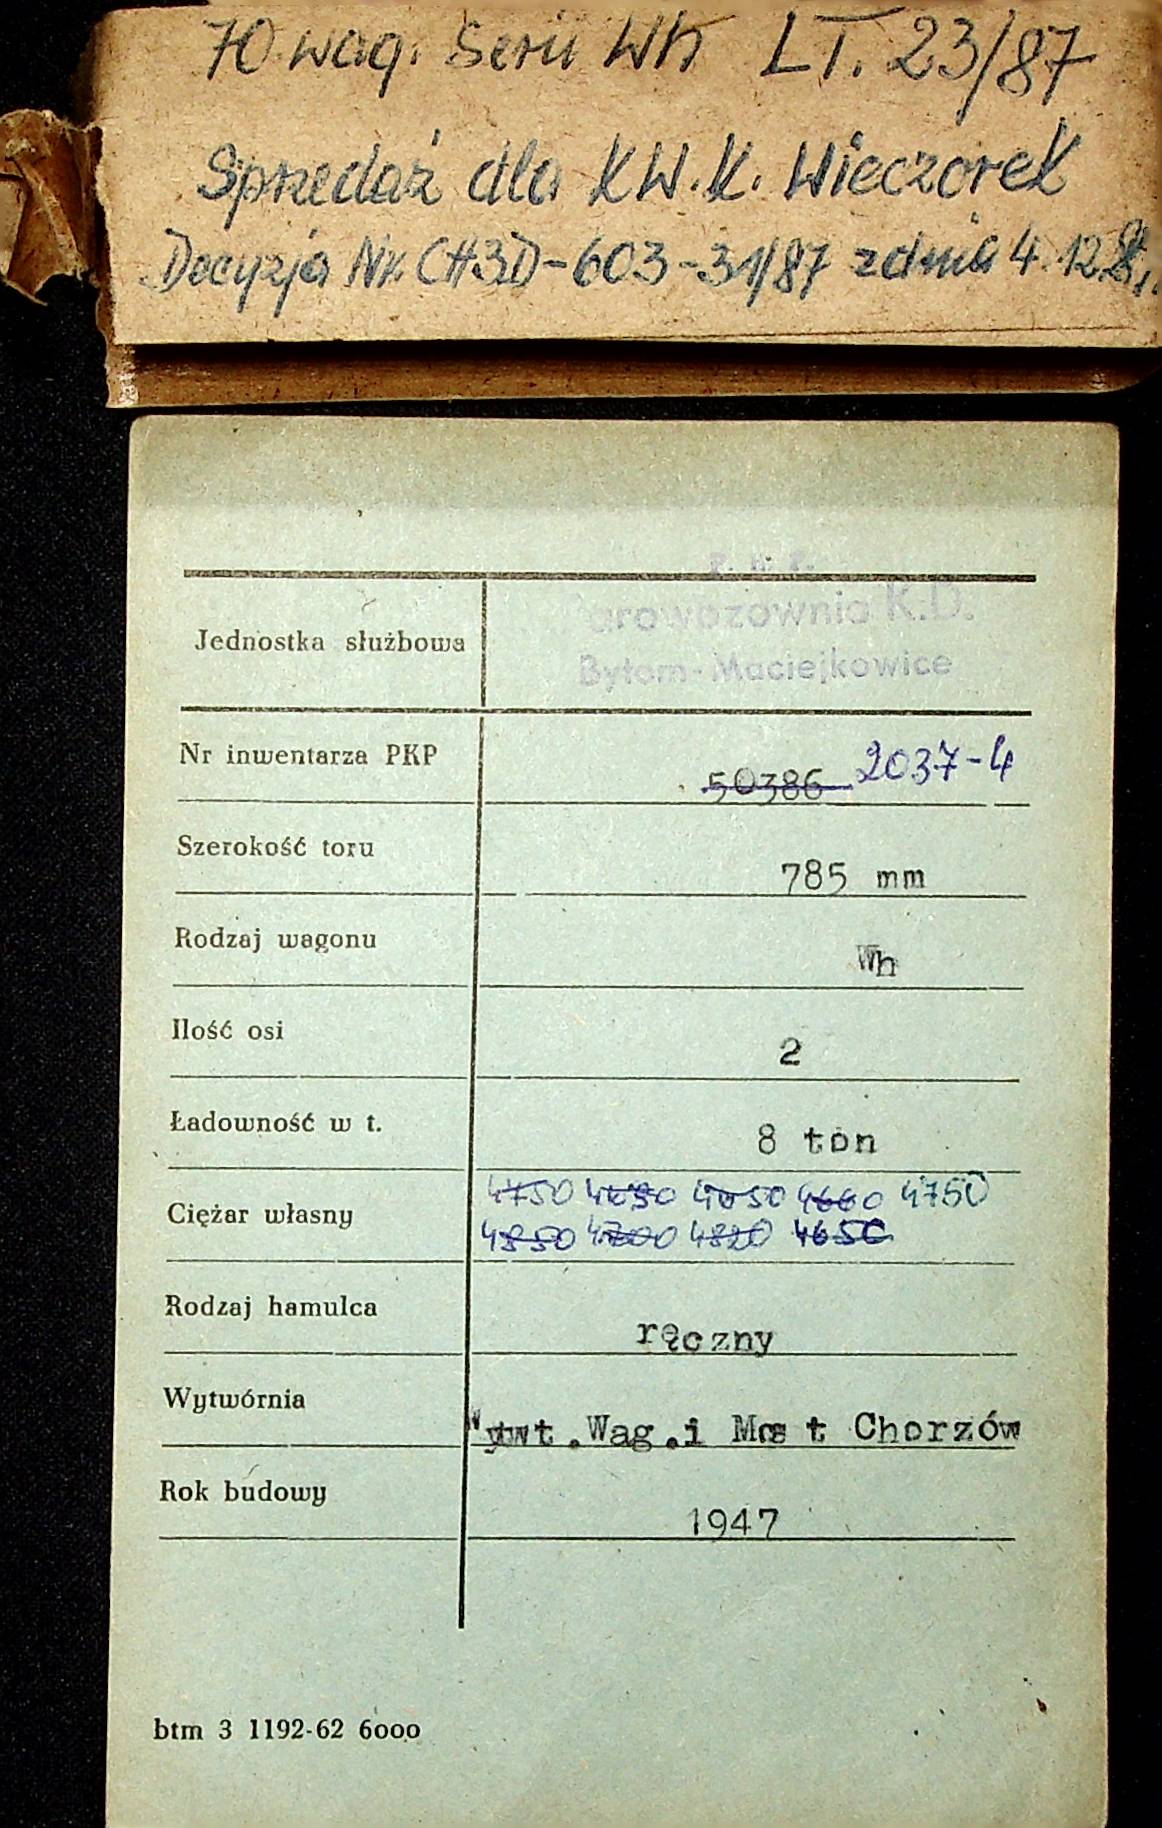 70 wag. Serii Wh LT. 23/87
Sprzedaż dla KW.K. Wieczorek
Decyzja Nr. CH3D-603-31/87 z dnia 4.12.
P. K. P.
arowozownia K.D.
Bytom-Maciejkowice
Jednostka służbowa
Nr inwentarza PKP 50386 2037-4
Szerokość toru 785 mm
Rodzaj wagonu Wh
Ilość osi 2
Ładowność w t. 8 ton
4750 4650 4660 4750
Ciężar własny
4850 4700 4820 4650
Rodzaj hamulca ręczny
Wytwórnia Wytwt.Wag.i Most Chorzów
Rok budowy 1947
btm 3 1192-62 6000